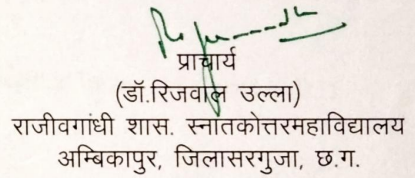 प्राचार्य
(डॉ.रिजवाल उल्ला)
राजीवगांधी शास. स्नातकोत्तरमहाविद्यालय
अम्बिकापुर, जिलासरगुजा, छ.ग.